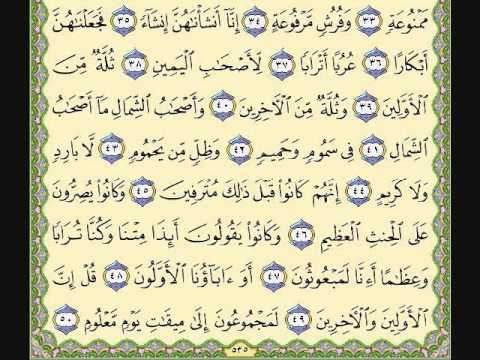 مَمْنُوعَةٍ ٣٣ وَفُرُشٍ مَّرْفُوعَةٍ ٣٤ إِنَّآ أَنشَأْنَٰهُنَّ إِنشَآءً ٣٥ فَجَعَلْنَٰهُنَّ
أَبْكَارًا ٣٦ عُرُبًا أَتْرَابًا ٣٧ لِّأَصْحَٰبِ ٱلْيَمِينِ ٣٨ ثُلَّةٌ مِّنَ
ٱلْأَوَّلِينَ ٣٩ وَثُلَّةٌ مِّنَ ٱلْءَاخِرِينَ ٤٠ وَأَصْحَٰبُ ٱلشِّمَالِ مَآ أَصْحَٰبُ
ٱلشِّمَالِ ٤١ فِى سَمُومٍ وَحَمِيمٍ ٤٢ وَظِلٍّ مِّن يَحْمُومٍ ٤٣ لَّا بَارِدٍ
وَلَا كَرِيمٍ ٤٤ إِنَّهُمْ كَانُوا۟ قَبْلَ ذَٰلِكَ مُتْرَفِينَ ٤٥ وَكَانُوا۟ يُصِرُّونَ
عَلَى ٱلْحِنثِ ٱلْعَظِيمِ ٤٦ وَكَانُوا۟ يَقُولُونَ أَئِذَا مِتْنَا وَكُنَّا تُرَابًا
وَعِظَٰمًا أَءِنَّا لَمَبْعُوثُونَ ٤٧ أَوَ ءَابَآؤُنَا ٱلْأَوَّلُونَ ٤٨ قُلْ إِنَّ
ٱلْأَوَّلِينَ وَٱلْءَاخِرِينَ ٤٩ لَمَجْمُوعُونَ إِلَىٰ مِيقَٰتِ يَوْمٍ مَّعْلُومٍ ٥٠
٥٣٥